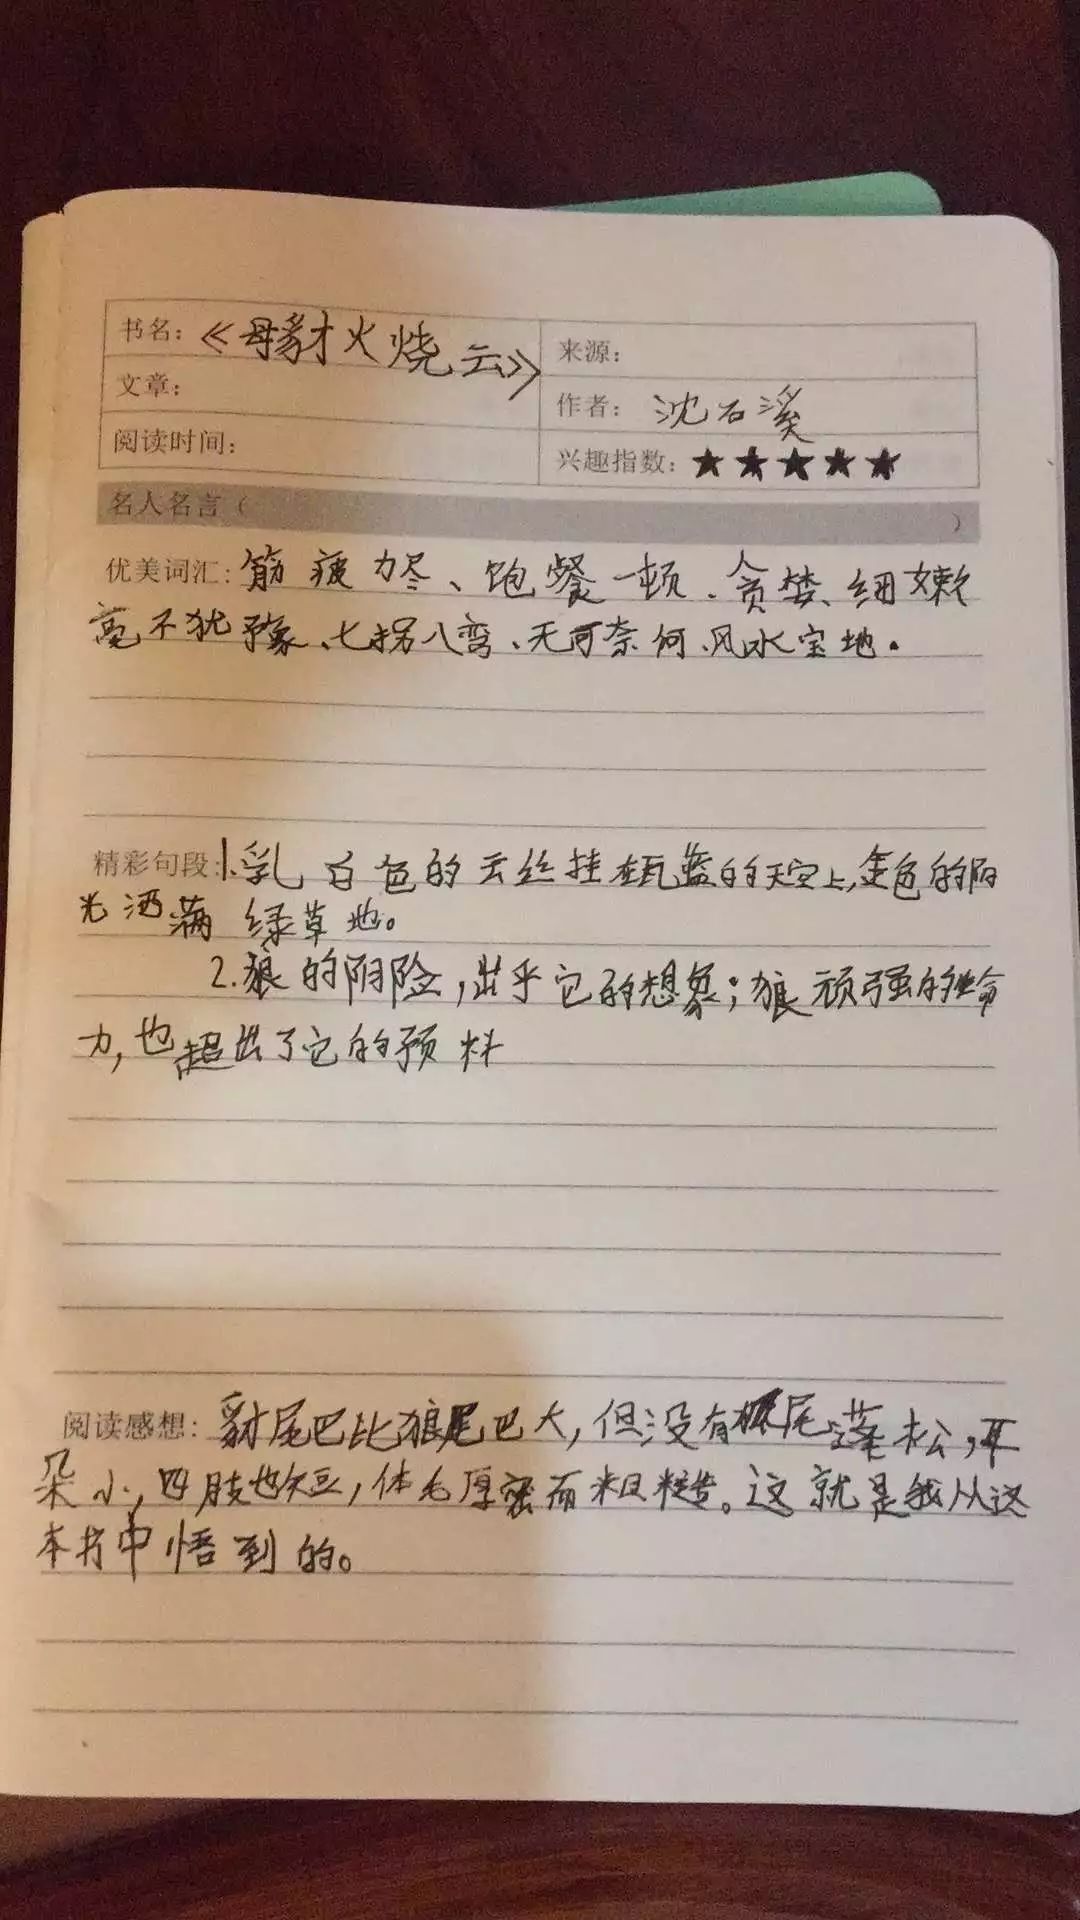 书名：《母豺火烧云》
来源：
文章：
作者：沈石溪
阅读时间：
兴趣指数：★★★★★
名人名言（ ）
优美词汇：筋疲力尽、饱餐一顿、贪婪、细嫩
毫不犹豫、七拐八弯、无可奈何、风水宝地。
精彩句段：1.乳白色的云丝挂在瓦蓝的天空上，金色的阳
光洒满绿草地。
2.狼的阴险，出乎它的想象；狼顽强的生命
力，也超出了它的预料
阅读感想：豺尾巴比狼尾巴大，但没有狼尾蓬松，耳
朵小，四肢也短，体毛厚密而粗糙。这就是我从这
本书中悟到的。